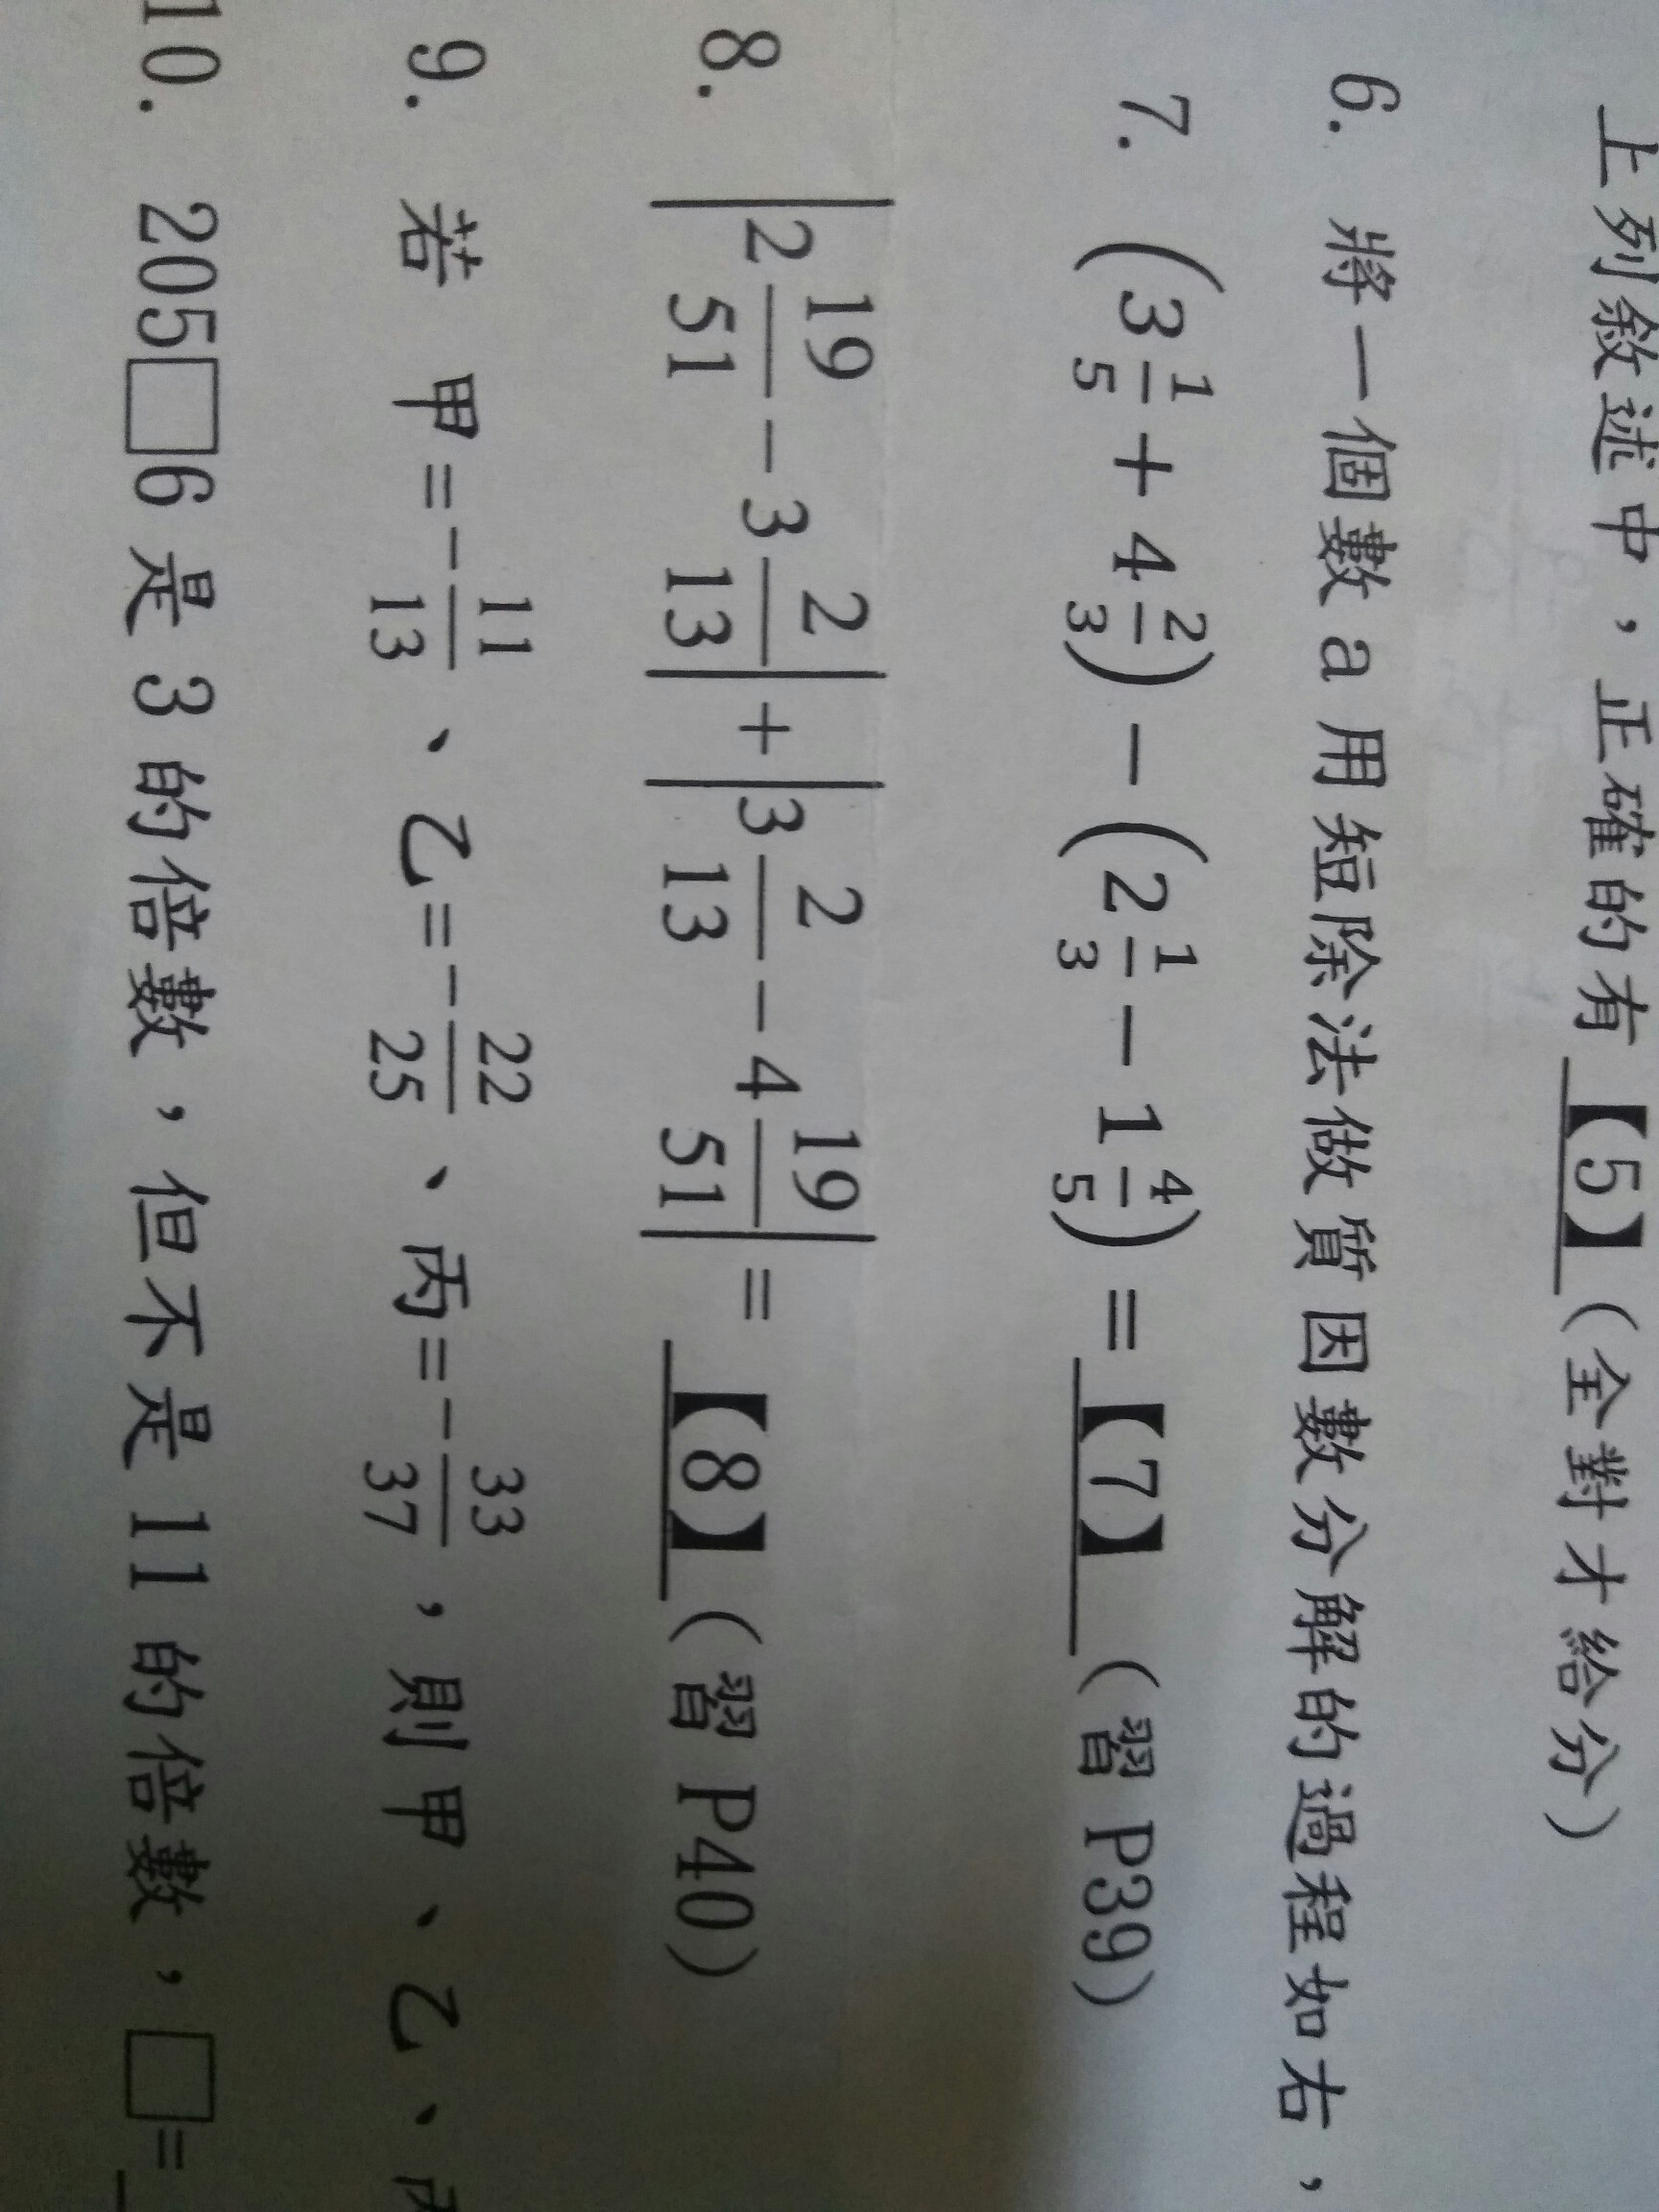 上列敘述中，正確的有【5】(全對才給分)
6. 將一個數 a 用短除法做質因數分解的過程如右，
7. (3 1/5 + 4 2/3) − (2 1/3 − 1 4/5) = 【7】 (習 P39)
8. |2 19/51 − 3 2/13| + |3 2/13 − 4 19/51| = 【8】 (習 P40)
9. 若 甲=−11/13、乙=−22/25、丙=−33/37，則甲、乙、
10. 205□6 是 3 的倍數，但不是 11 的倍數，□=